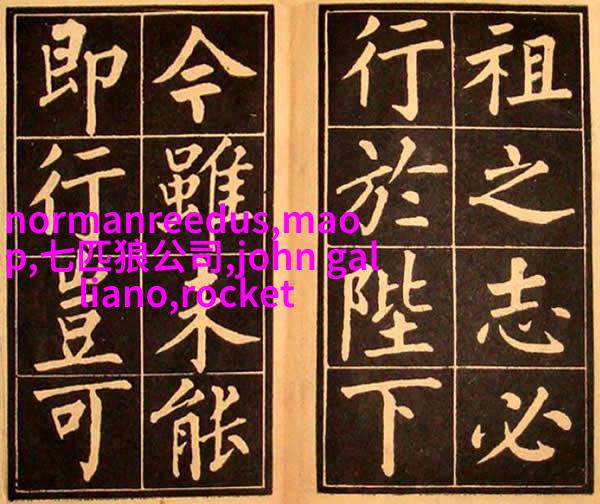 祖之志必
行於陛下
今雖未能
即行豈可
normanreedus,mao
p,七匹狼公司,john gal
liano,rocket